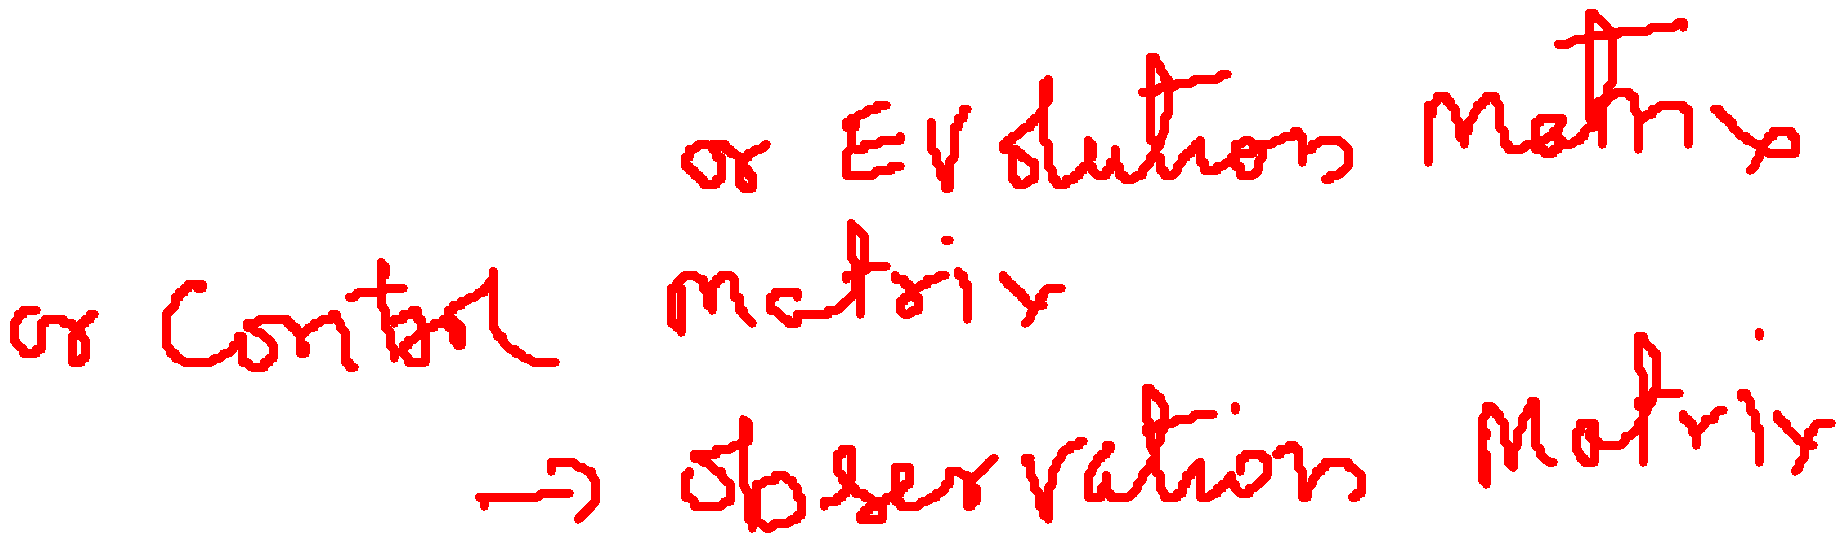 or Evolution Matrix
or Control Matrix
→ observation Matrix